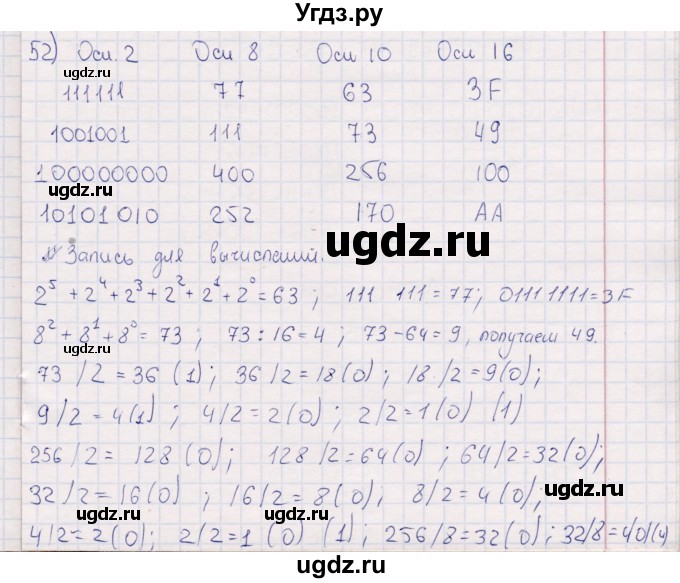 Угдз.ру
52) Осн. 2 Осн 8 Осн 10 Осн 16
ugdz.ru
111111 77 63 3F
1001001 111 73 49
100000000 400 256 100
ugdz.ru
10101010 252 170 AA
ugdz.ru
Запись для вычислений.
2⁵ + 2⁴ + 2³ + 2² + 2¹ + 2⁰ = 63 ; 111 111 = 77; 01111111 = 3F
8² + 8¹ + 8⁰ = 73 ; 73 : 16 = 4 ; 73 - 64 = 9, получаем 49.
ugdz.ru
73 / 2 = 36 (1) ; 36 / 2 = 18 (0) ; 18 / 2 = 9 (0) ;
9 / 2 = 4 (1) ; 4 / 2 = 2 (0) ; 2 / 2 = 1 (0) (1)
256 / 2 = 128 (0) ; 128 / 2 = 64 (0) ; 64 / 2 = 32 (0) ;
32 / 2 = 16 (0) ; 16 / 2 = 8 (0) ; 8 / 2 = 4 (0) ,
ugdz.ru ugdz.ru
4 / 2 = 2 (0) ; 2 / 2 = 1 (0) (1) ; 256 / 8 = 32 (0) ; 32 / 8 = 4 0 (4)
ugdz.ru